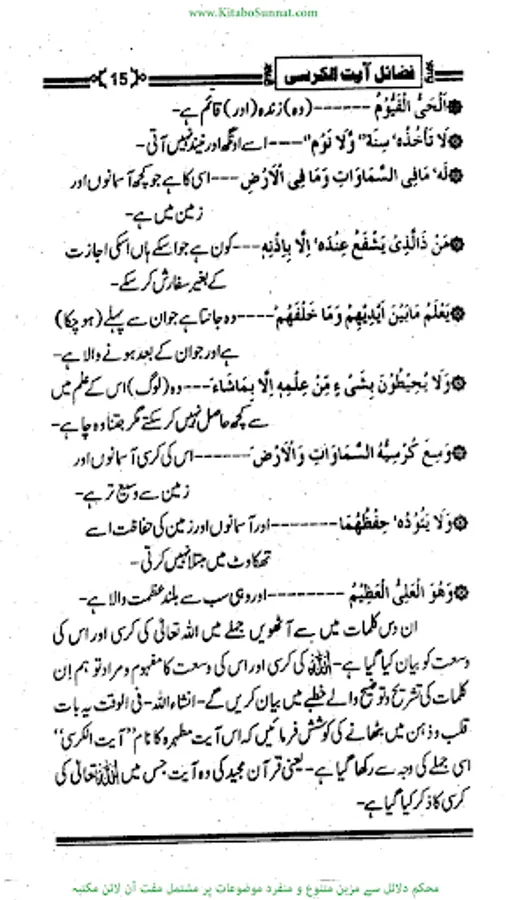 www.KitaboSunnat.com
فضائل آیت الکرسی
15
اَلْحَیُّ الْقَیُّوْمُ ------(وہ) زندہ (اور) قائم ہے-
لَا تَاْخُذُہٗ سِنَۃٌ وَّلَا نَوْمٌ---اسے اونگھ اور نیند نہیں آتی-
لَہٗ مَافِی السَّمَاوَاتِ وَمَا فِی الْاَرْضِ---اسی کا ہے جو کچھ آسمانوں اور
زمین میں ہے-
مَنْ ذَالَّذِیْ یَشْفَعُ عِنْدَہٗ اِلَّا بِاِذْنِہٖ---کون ہے جو اسکے ہاں اسکی اجازت
کے بغیر سفارش کر سکے-
یَعْلَمُ مَابَیْنَ اَیْدِیْھِمْ وَمَا خَلْفَھُمْ----وہ جانتا ہے جو ان سے پہلے (ہو چکا)
ہے اور جو ان کے بعد ہونے والا ہے-
وَلَا یُحِیْطُوْنَ بِشَیْ ءٍ مِّنْ عِلْمِہٖ اِلَّا بِمَاشَاءَ---وہ (لوگ) اس کے علم میں
سے کچھ حاصل نہیں کر سکتے مگر جتنا وہ چاہے-
وَسِعَ کُرْسِیُّہُ السَّمَاوَاتِ وَالْاَرْضَ------اس کی کرسی آسمانوں اور
زمین سے وسیع تر ہے-
وَلَا یَئُوْدُہٗ حِفْظُھُمَا-------اور آسمانوں اور زمین کی حفاظت اسے
تھکاوٹ میں مبتلا نہیں کرتی-
وَھُوَ الْعَلِیُّ الْعَظِیْمُ --------اور وہی سب سے بلند عظمت والا ہے-
ان دس کلمات میں سے آٹھویں جملے میں اللہ تعالٰی کی کرسی اور اس کی
وسعت کو بیان کیا گیا ہے-اللہ کی کرسی اور اس کی وسعت کا مفہوم و مراد تو ہم اِن
کلمات کی تشریح و توضیح والے خطبے میں بیان کریں گے-انشاء اللہ-فی الوقت یہ بات
قلب و ذہن میں بٹھانے کی کوشش فرمائیں کہ اس آیت مطہرہ کا نام ’’آیت الکرسی‘‘
اسی جملے کی وجہ سے رکھا گیا ہے-یعنی قرآن مجید کی وہ آیت جس میں اللہ تعالٰی کی
کرسی کا ذکر کیا گیا ہے-
محکم دلائل سے مزین متنوع و منفرد موضوعات پر مشتمل مفت آن لائن مکتبہ